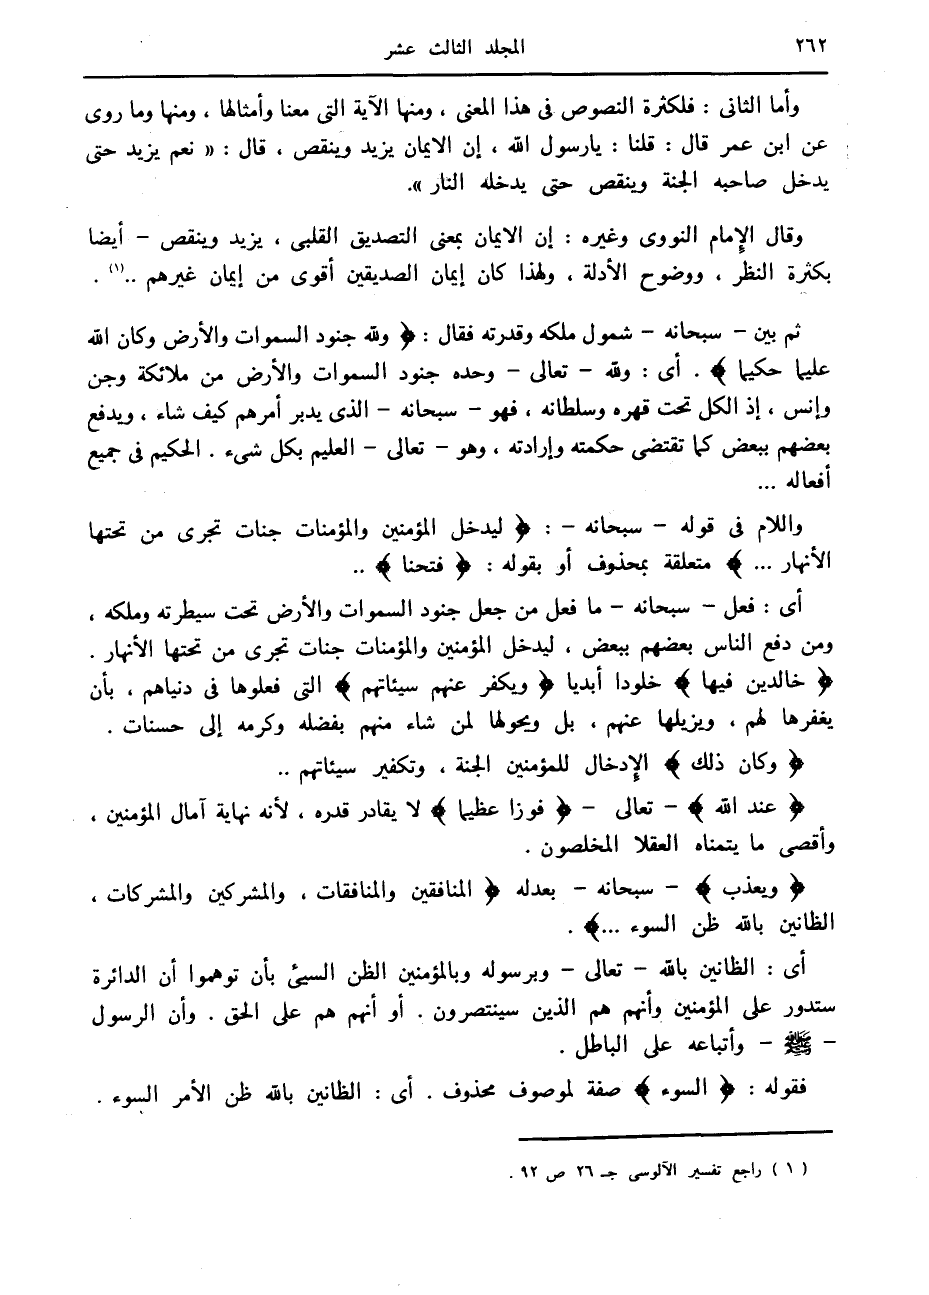 ٢٦٢ المجلد الثالث عشر
وأما الثانى : فلكثرة النصوص فى هذا المعنى ، ومنها الآية التى معنا وأمثالها ، ومنها وما روى
عن ابن عمر قال : قلنا : يارسول الله ، إن الايمان يزيد وينقص ، قال : « نعم يزيد حتى
يدخل صاحبه الجنة وينقص حتى يدخله النار ».
وقال الإمام النووى وغيره : إن الايمان بمعنى التصديق القلبى ، يزيد وينقص – أيضا
بكثرة النظر ، ووضوح الأدلة ، ولهذا كان إيمان الصديقين أقوى من إيمان غيرهم ..(١) .
ثم بين – سبحانه – شمول ملكه وقدرته فقال : ﴿ ولله جنود السموات والأرض وكان الله
عليما حكيما ﴾ . أى : ولله – تعالى – وحده جنود السموات والأرض من ملائكة وجن
وإنس ، إذ الكل تحت قهره وسلطانه ، فهو – سبحانه – الذى يدبر أمرهم كيف شاء ، ويدفع
بعضهم ببعض كما تقتضى حكمته وإرادته ، وهو – تعالى – العليم بكل شىء . الحكيم فى جميع
أفعاله ...
واللام فى قوله – سبحانه – : ﴿ ليدخل المؤمنين والمؤمنات جنات تجرى من تحتها
الأنهار ... ﴾ متعلقة بمحذوف أو بقوله : ﴿ فتحنا ﴾ ..
أى : فعل – سبحانه – ما فعل من جعل جنود السموات والأرض تحت سيطرته وملكه ،
ومن دفع الناس بعضهم ببعض ، ليدخل المؤمنين والمؤمنات جنات تجرى من تحتها الأنهار .
﴿ خالدين فيها ﴾ خلودا أبديا ﴿ ويكفر عنهم سيئاتهم ﴾ التى فعلوها فى دنياهم ، بأن
يغفرها لهم ، ويزيلها عنهم ، بل ويحولها لمن شاء منهم بفضله وكرمه إلى حسنات .
﴿ وكان ذلك ﴾ الإدخال للمؤمنين الجنة ، وتكفير سيئاتهم ..
﴿ عند الله ﴾ – تعالى – ﴿ فوزا عظيما ﴾ لا يقادر قدره ، لأنه نهاية آمال المؤمنين ،
وأقصى ما يتمناه العقلا المخلصون .
﴿ ويعذب ﴾ – سبحانه – بعدله ﴿ المنافقين والمنافقات ، والمشركين والمشركات ،
الظانين بالله ظن السوء ...﴾ .
أى : الظانين بالله – تعالى – وبرسوله وبالمؤمنين الظن السيئ بأن توهموا أن الدائرة
ستدور على المؤمنين وأنهم هم الذين سينتصرون . أو أنهم هم على الحق . وأن الرسول
– ﷺ – وأتباعه على الباطل .
فقوله : ﴿ السوء ﴾ صفة لموصوف محذوف . أى : الظانين بالله ظن الأمر السوء .
( ١ ) راجع تفسير الآلوسى جـ ٢٦ ص ٩٢ .